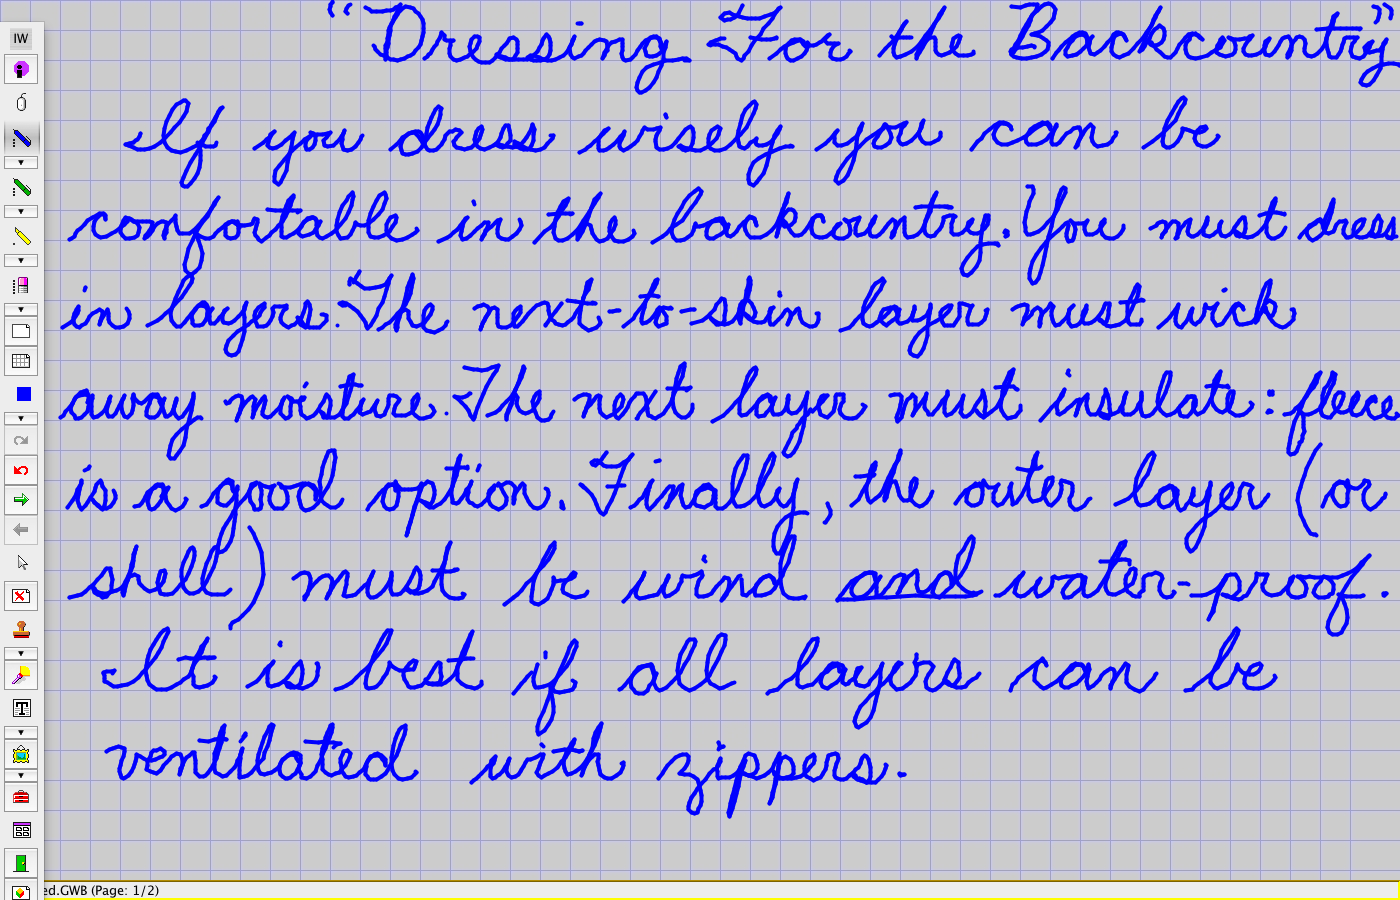 “Dressing For the Backcountry”
If you dress wisely you can be
comfortable in the backcountry. You must dress
in layers. The next-to-skin layer must wick
away moisture. The next layer must insulate: fleece
is a good option. Finally, the outer layer (or
shell) must be wind and water-proof.
It is best if all layers can be
ventilated with zippers.
IW
T
ed.GWB (Page: 1/2)